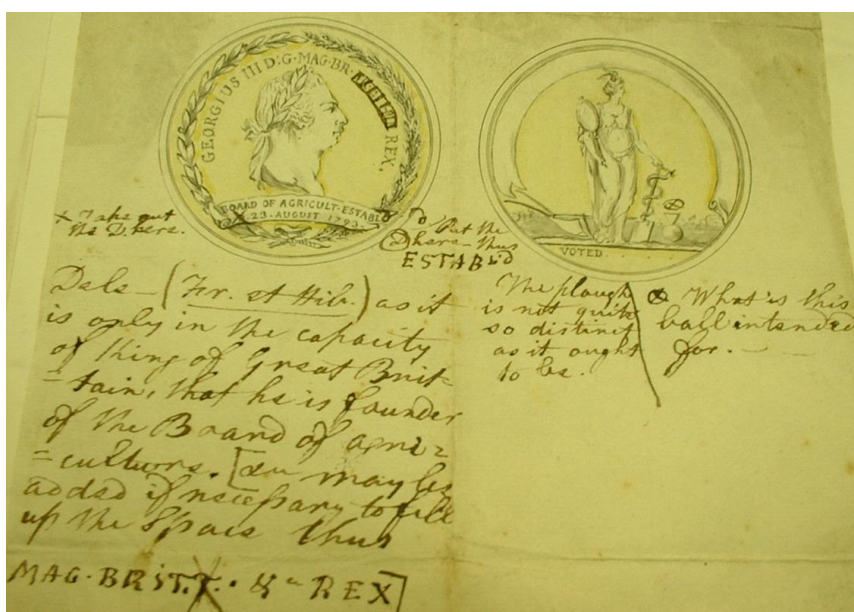 GEORGIUS III D:G·MAG·BR· REX.
BOARD OF AGRICULT·ESTABL
23·AUGUST 1793·
VOTED
x Take out
the D. here.
To Put the
D here thus
ESTABD
Dele – (Fr. et Hib.) as it
is only in the capacity
of King of Great Brit-
-tain, that he is founder
of the Board of agri=
=culture. [&c may be
added if necessary to fill
up the Space thus
MAG·BRIT.T. · &c REX]
The plough
is not quite
so distinct
as it ought
to be.
What is this
ball intended
for. —